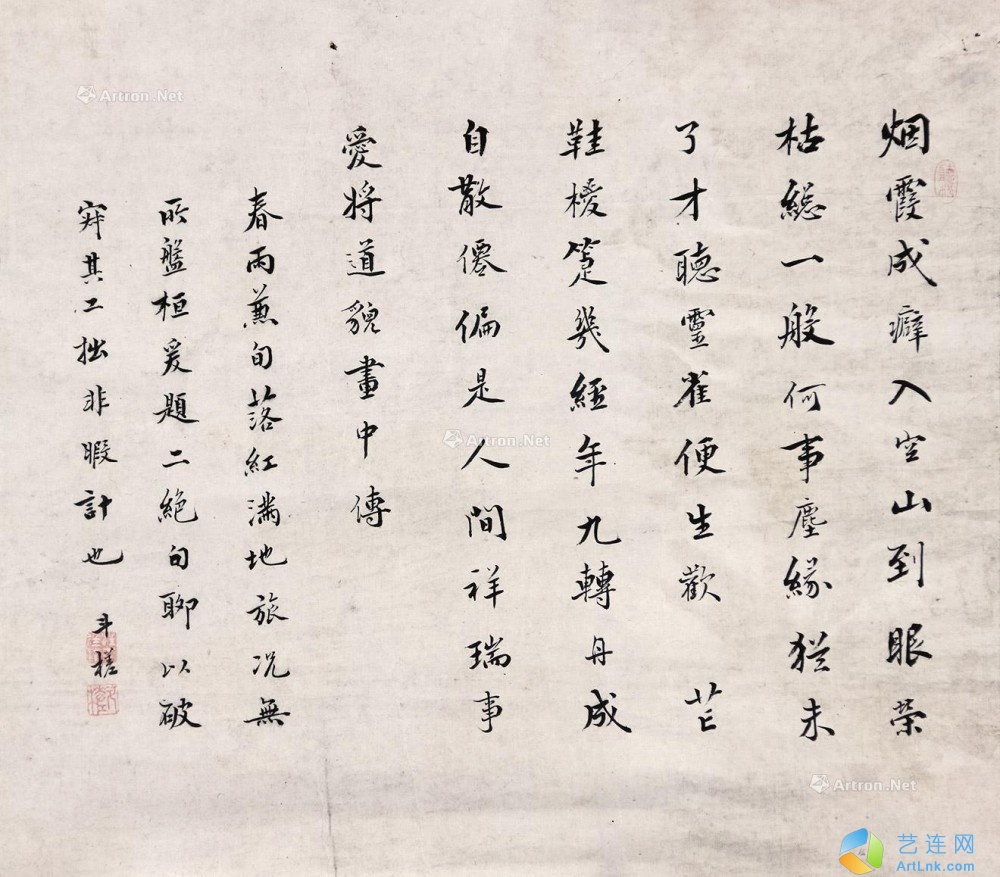 烟霞成癖入空山到眼荣
枯總一般何事塵緣猶未
了才聽靈雀便生歡 芒
鞋椶笠幾經年九轉丹成
自散僊偏是人間祥瑞事
愛將道貌畫中傳
春雨蒹旬落紅滿地旅况無
所盤桓爰題二絶句聊以破
寂其工拙非暇計也 斗槎
Artron.Net
Artron.Net
Artron.Net
艺连网
ArtLnk.com